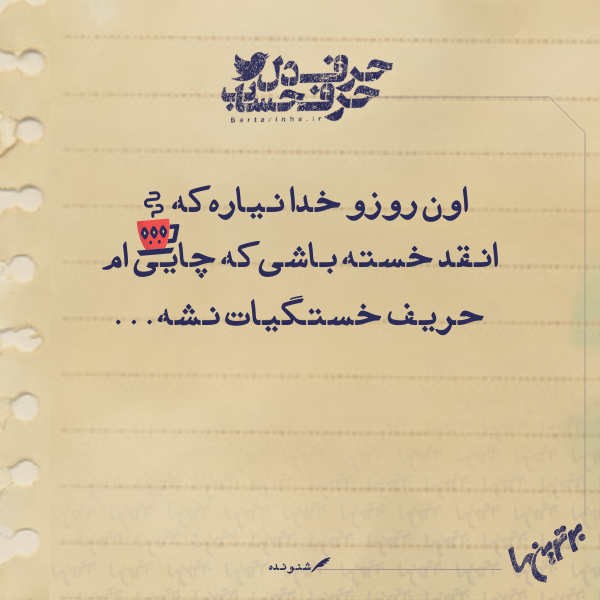 حرف دل
حرف حساب
Bartarinha.ir
اون روزو خدا نیاره که
انقد خسته باشی که چایی ام
حریف خستگیات نشه...
شنونده
برترین‌ها